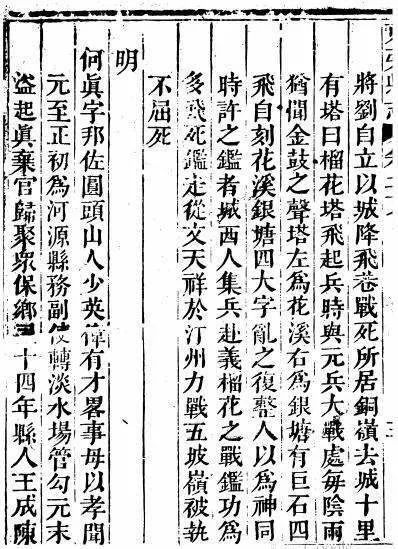 將劉自立以城降飛巷戰死所居銅嶺去城十里
有塔曰榴花塔飛起兵時與元兵大戰處每陰雨
猶聞金鼓之聲塔左為花溪右為銀塘有巨石四
飛自刻花溪銀塘四大字亂之復整人以為神同
時許之鑑者城西人集兵赴義榴花之戰鑑功為
多飛死鑑走從文天祥於汀州力戰五坡嶺被執
不屈死
明
何眞字邦佐圓頭山人少英偉有才畧事母以孝聞
元至正初為河源縣務副使轉淡水場管勾元末
盜起眞棄官歸聚眾保鄉十四年縣人王成陳